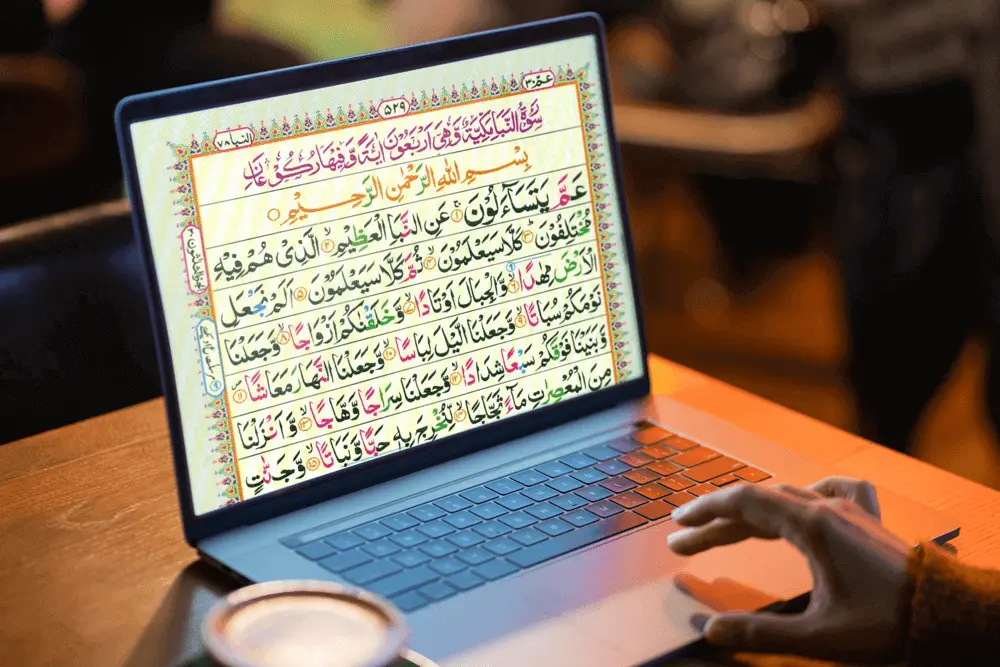 عـمّ ٣٠
٥٢٩
النبا ٧٨
سُوْرَةُ النَّبَاِ مَكِّيَّةٌ وَّهِىَ اَرْبَعُوْنَ اٰيَةً وَّفِيْهَا رُكُوْعَانِ
بِسْمِ اللّٰهِ الرَّحْمٰنِ الرَّحِيْمِ
عَمَّ يَتَسَآءَلُوْنَ ۱ عَنِ النَّبَاِ الْعَظِيْمِ ۲ الَّذِىْ هُمْ فِيْهِ
مُخْتَلِفُوْنَ ۳ كَلَّا سَيَعْلَمُوْنَ ۴ ثُمَّ كَلَّا سَيَعْلَمُوْنَ ۵ اَلَمْ نَجْعَلِ
الْاَرْضَ مِهٰدًا ۶ وَّالْجِبَالَ اَوْتَادًا ۷ وَّخَلَقْنٰكُمْ اَزْوَاجًا ۸ وَّجَعَلْنَا
نَوْمَكُمْ سُبَاتًا ۹ وَّجَعَلْنَا الَّيْلَ لِبَاسًا ۱۰ وَّجَعَلْنَا النَّهَارَ مَعَاشًا ۱۱
وَّبَنَيْنَا فَوْقَكُمْ سَبْعًا شِدَادًا ۱۲ وَّجَعَلْنَا سِرَاجًا وَّهَّاجًا ۱۳ وَّاَنْزَلْنَا
مِنَ الْمُعْصِرٰتِ مَآءً ثَجَّاجًا ۱۴ لِّنُخْرِجَ بِهٖ حَبًّا وَّنَبَاتًا ۱۵ وَّجَنّٰتٍ